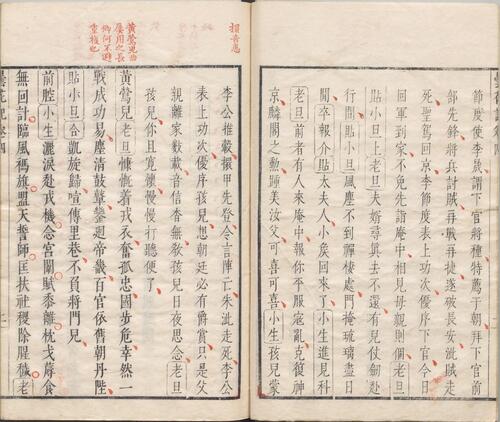 節度使李晟謂下官將種特薦于朝拜下官前
部先鋒將兵討賊再戰再捷遂破長安泚賊走
死聖駕回京李節度表上功次優序下官今日
回軍到家不免先詣庵中相見母親則個老旦
貼小旦上老旦夫婿尋眞去不還有兒仗劒赴
行間貼小旦風塵不到禪棲處門掩琉璃盡日
閒卒報介貼太夫人小矦回來了小生進見科
老旦前者有人來庵中報你平服寇亂克復神
京麟閣之勲踵美汝父可喜可喜小生孩兒蒙
李公推轂擐甲先登令言陣亡朱泚走死李公
表上功次優序孩兒想朝廷必有爵賞只是父
親離家數載音信杳無教孩兒日夜思念老旦
孩兒你且寬懷慢慢打聽便了
黃鶯兒老旦慷慨着戎衣奮孤忠國步危幸然一
戰成功易塵清鼓鼙鑾迴帝畿百官依舊朝丹陛
貼小旦合凱旋歸喧傳里巷不負將門兒
前腔小生灑淚赴戎機念宮闕賦黍離枕戈蓐食
無回計臨風禡旗盟天誓師匡扶社稷除腥穢老
損音愚
黃鶯兒曲
屢用之長
卿何不避
重複也